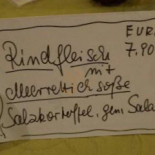 EUR
7.90
Rindfleisch
mit
Meerrettichsoße
Salzkartoffel, gem. Salat